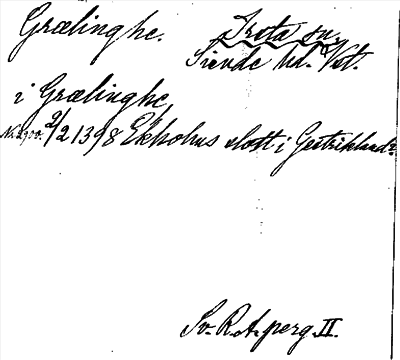 Grælinghe.
Trota sn.
Siende hd. Vst.
i Grælinghe
Nr. 2900. 2/2 1398 Ekholms slott i Gestrikland?
Sv. R. A. perg. II.